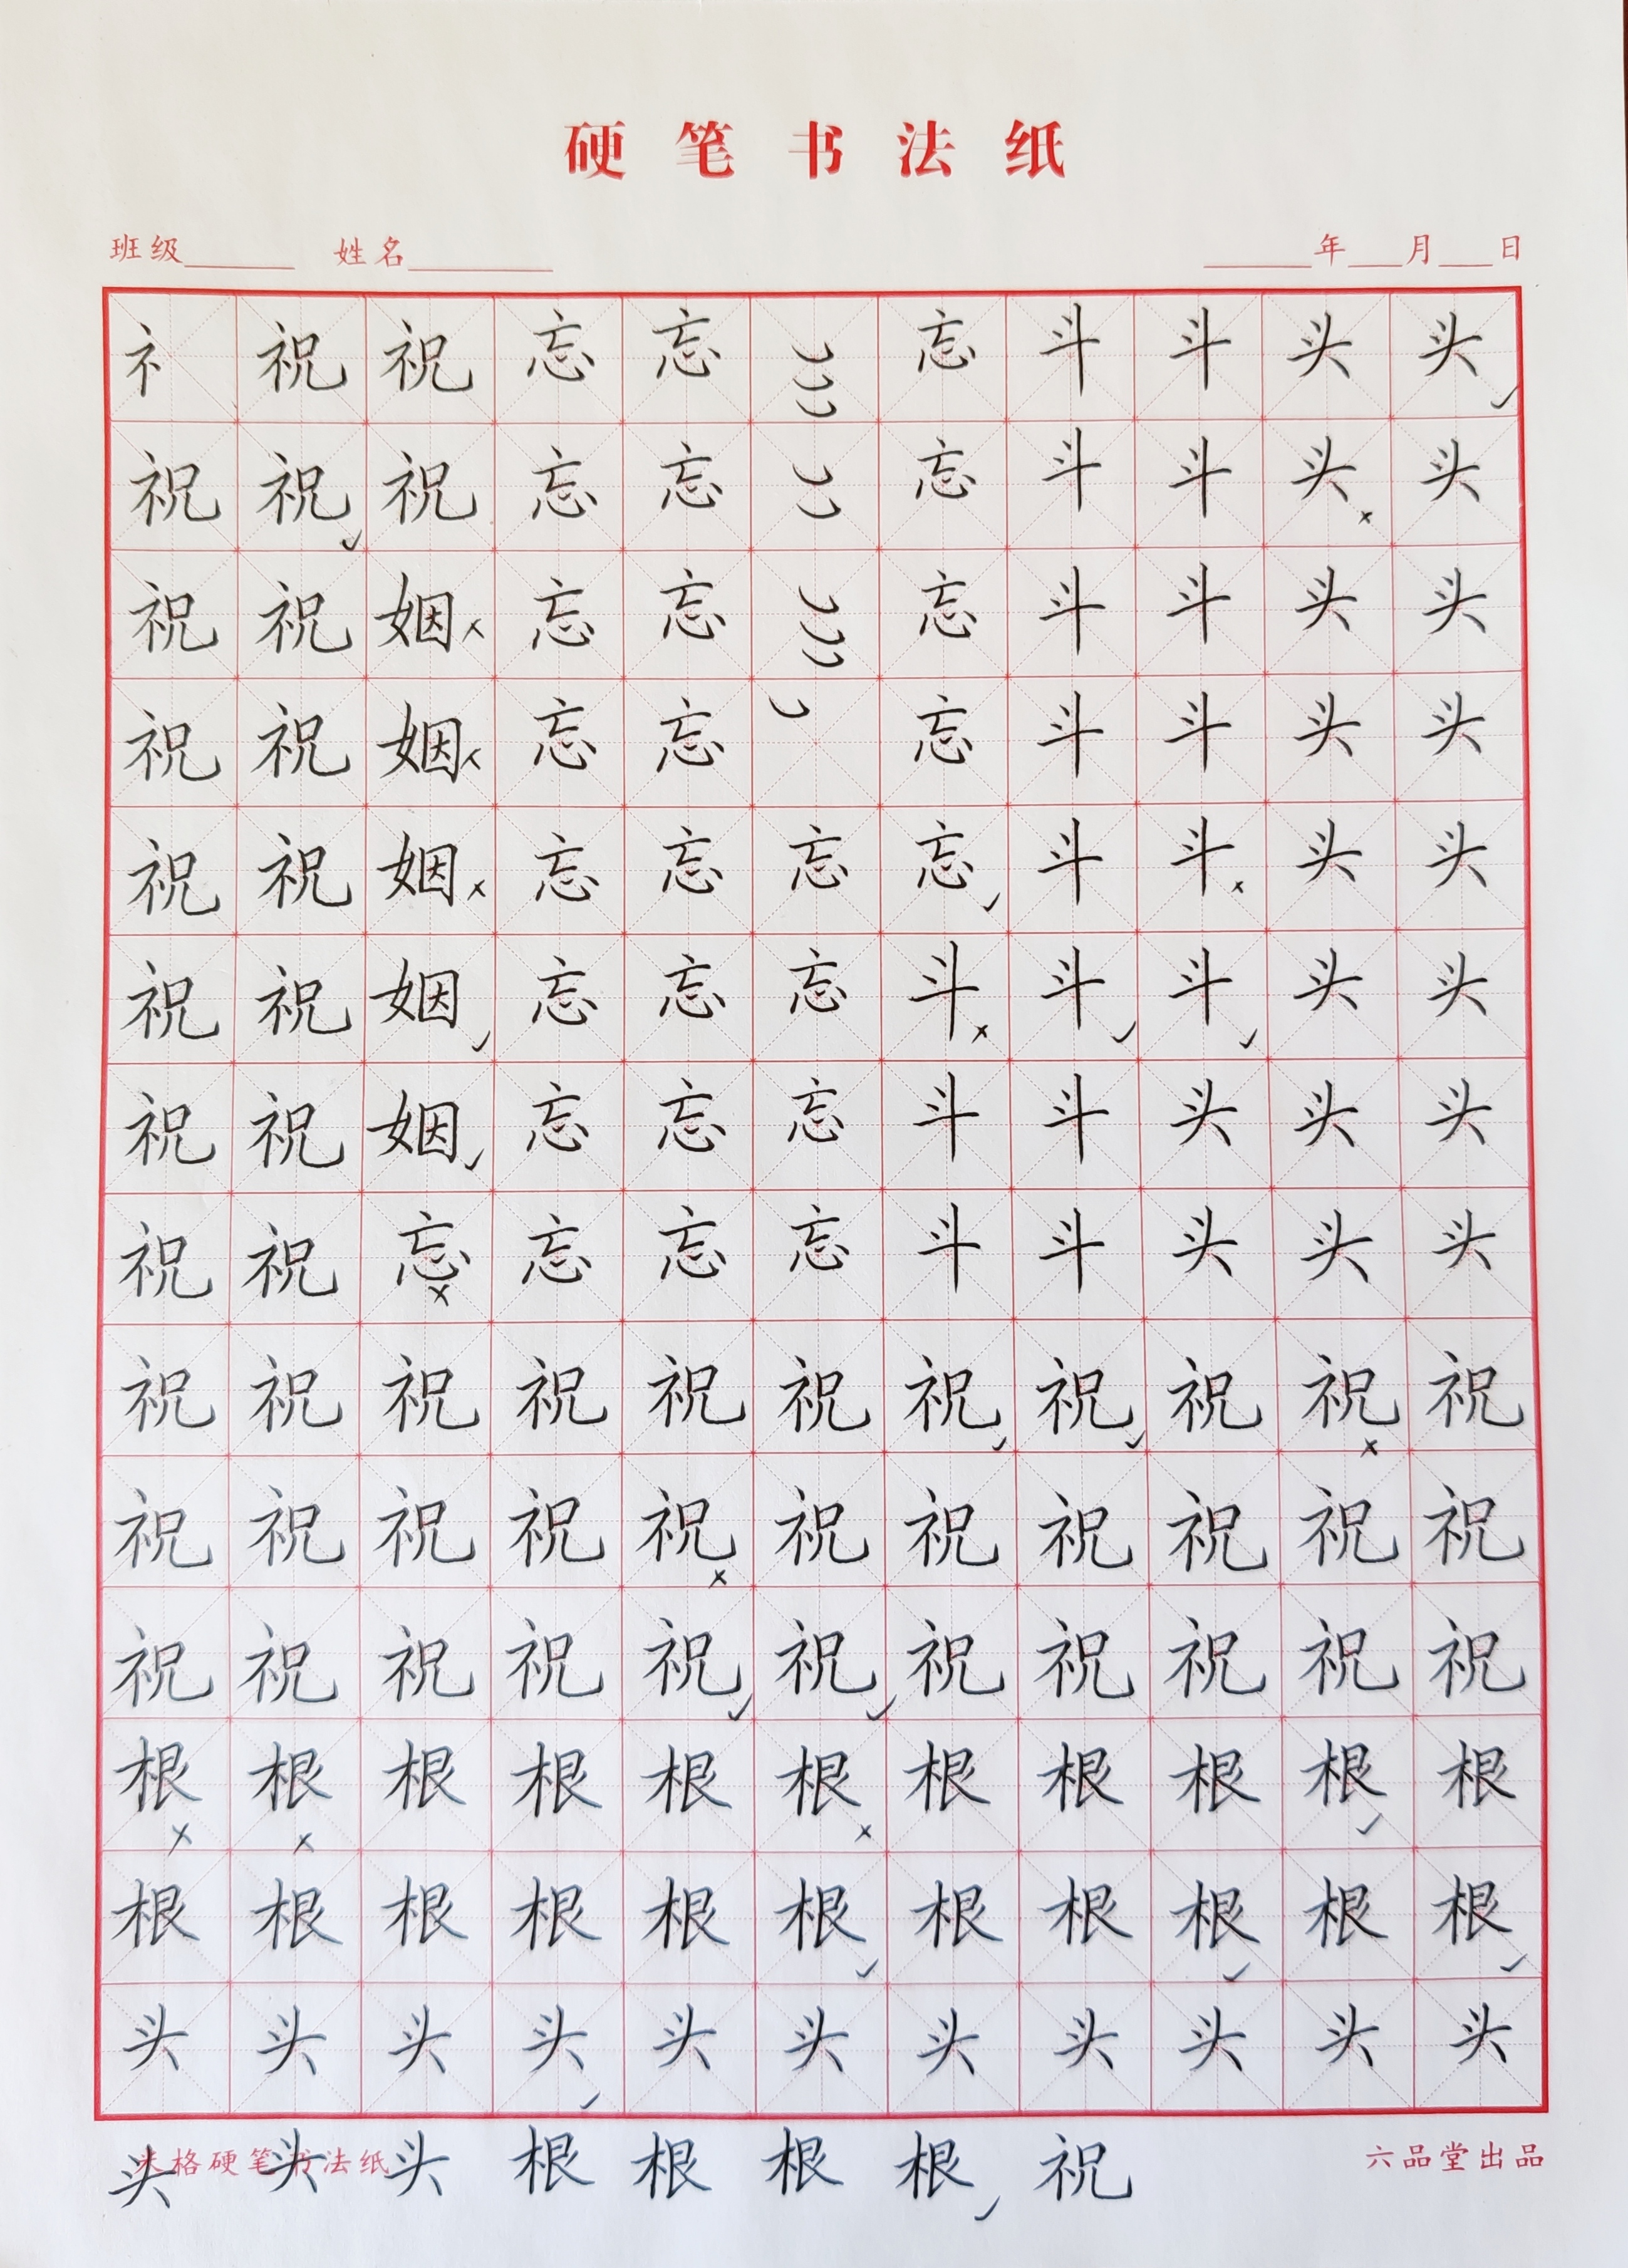 硬笔书法纸
班级 姓名 年 月 日
礻 祝 祝 忘 忘 忘 斗 斗 头 头
祝 祝 祝 忘 忘 忘 斗 斗 头 头
祝 祝 姻 忘 忘 忘 斗 斗 头 头
祝 祝 姻 忘 忘 忘 斗 斗 头 头
祝 祝 姻 忘 忘 忘 忘 斗 斗 头 头
祝 祝 姻 忘 忘 忘 斗 斗 斗 头 头
祝 祝 姻 忘 忘 忘 斗 斗 头 头 头
祝 祝 忘 忘 忘 忘 斗 斗 头 头 头
祝 祝 祝 祝 祝 祝 祝 祝 祝 祝 祝
祝 祝 祝 祝 祝 祝 祝 祝 祝 祝 祝
祝 祝 祝 祝 祝 祝 祝 祝 祝 祝 祝
根 根 根 根 根 根 根 根 根 根 根
根 根 根 根 根 根 根 根 根 根 根
头 头 头 头 头 头 头 头 头 头 头
头 头 头 根 根 根 根 祝
米格硬笔书法纸 六品堂出品